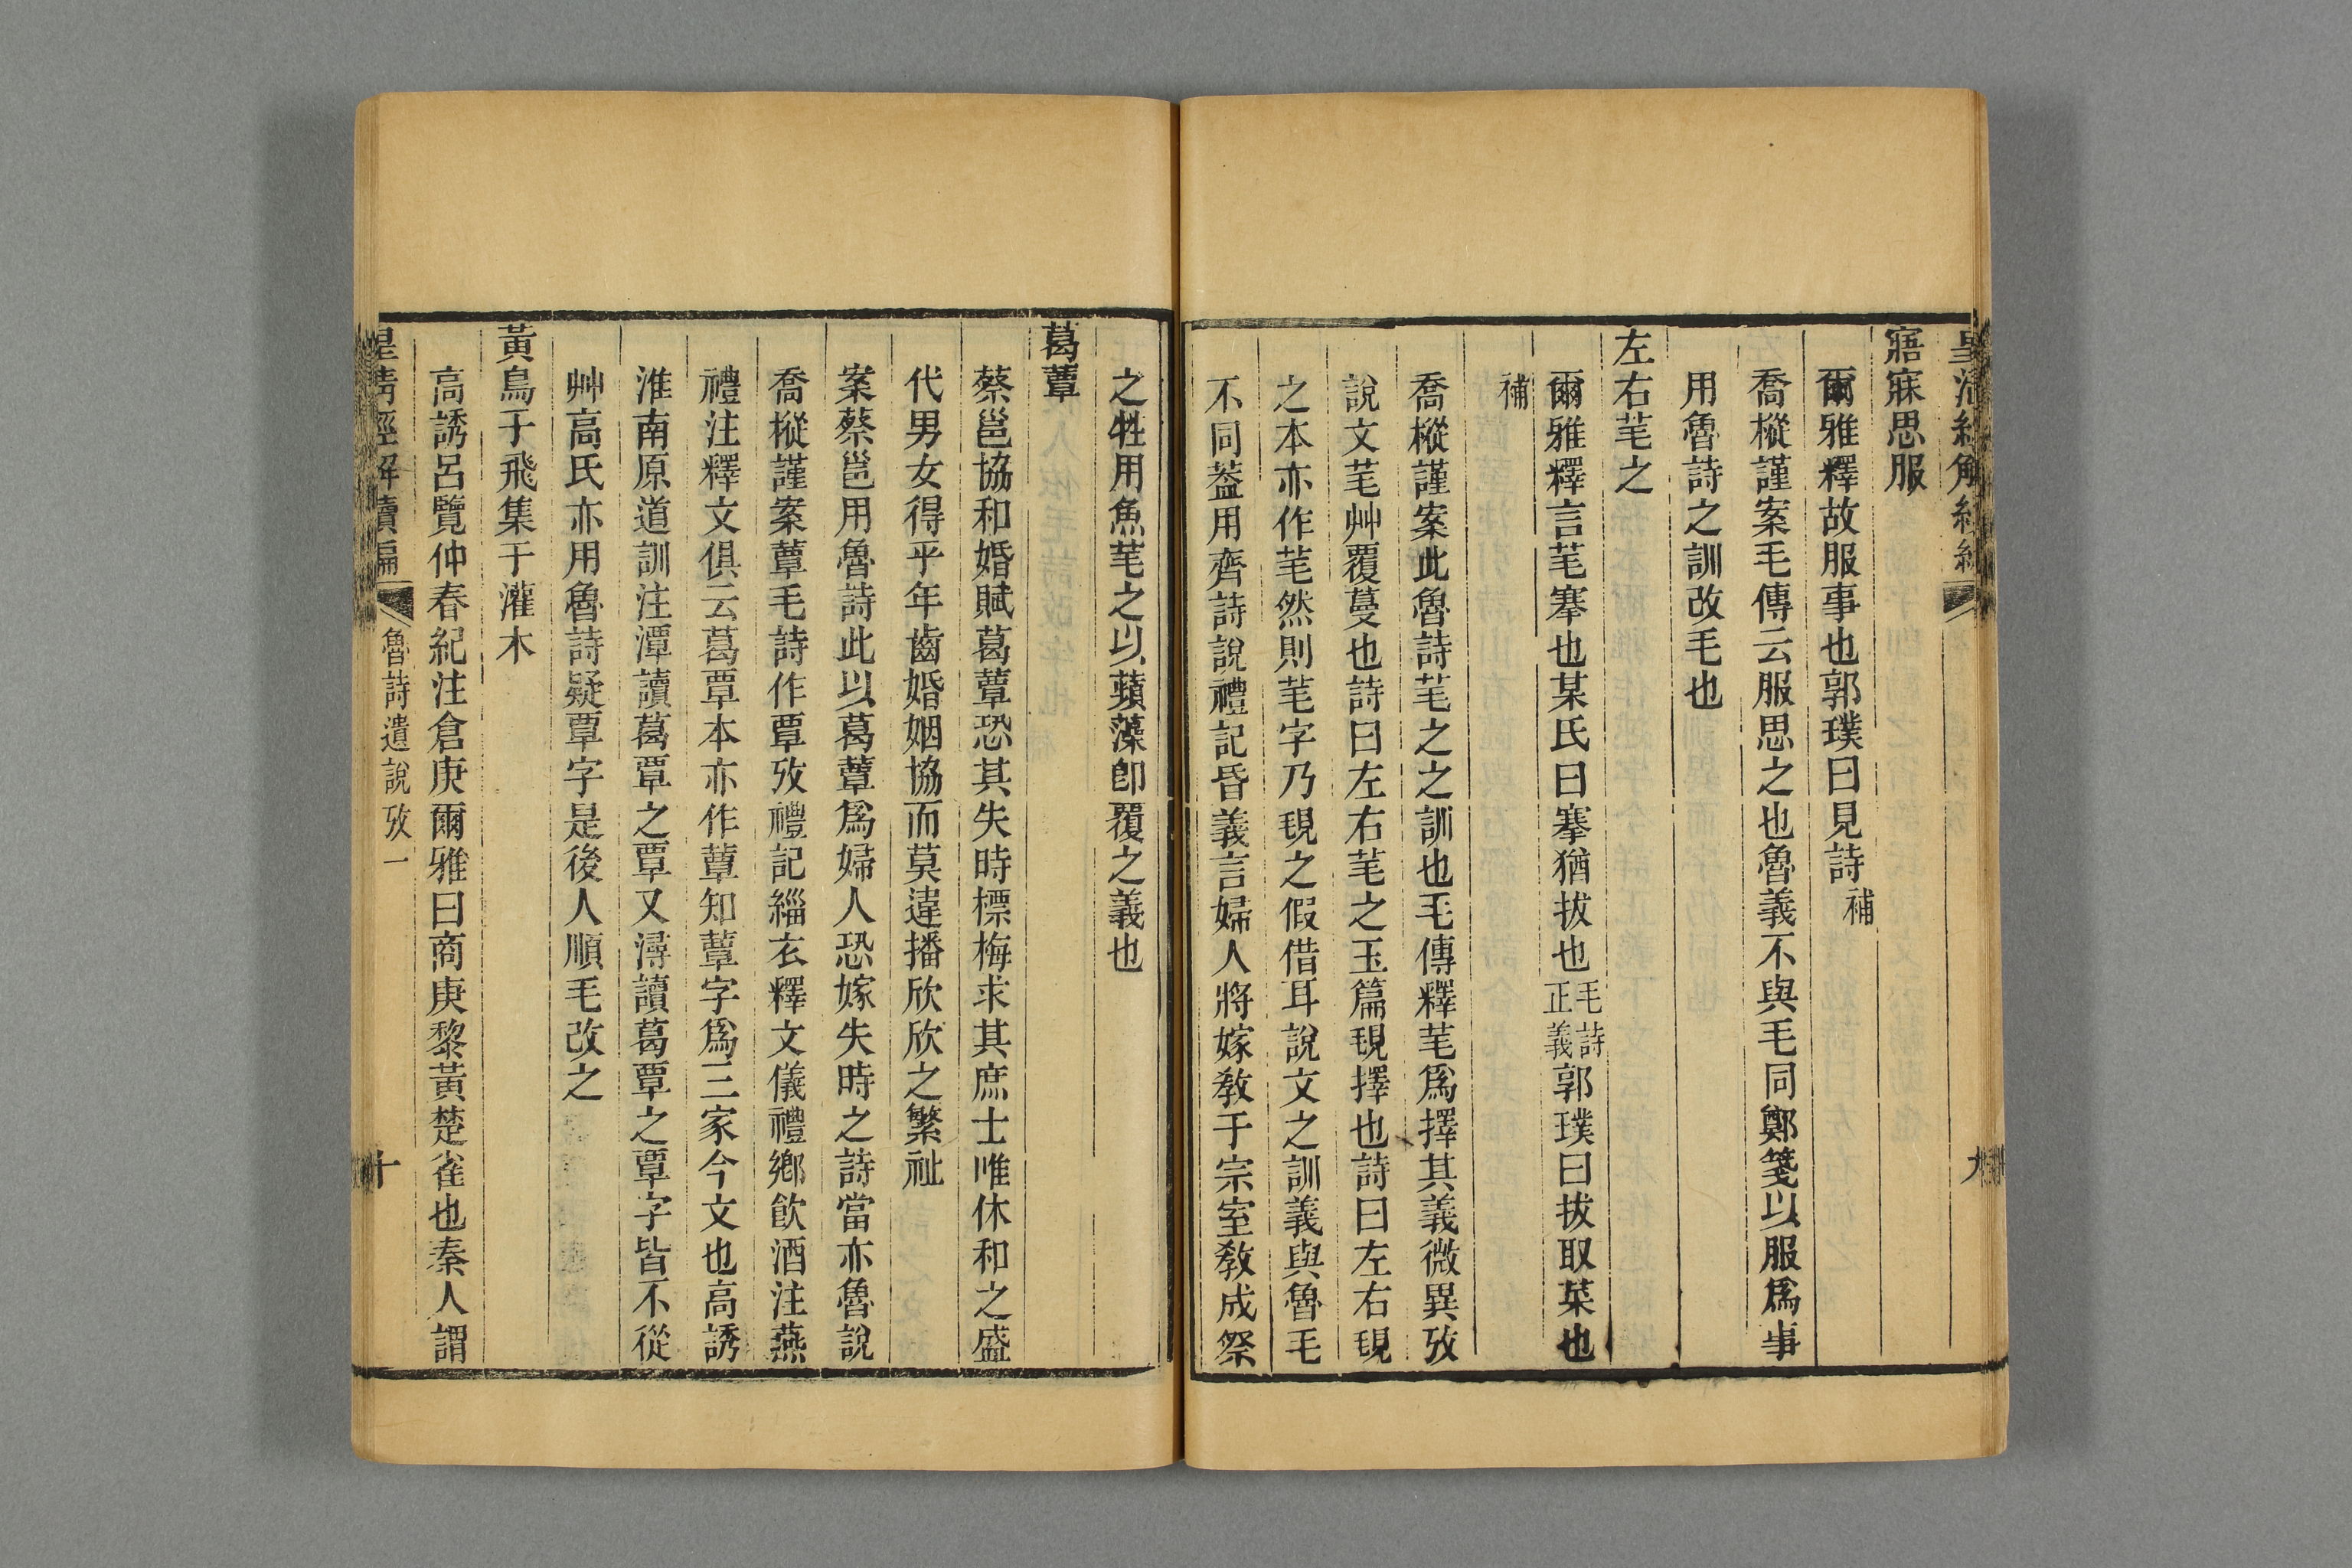 寤寐思服
爾雅釋故服事也郭璞曰見詩補
喬樅謹案毛傳云服思之也魯義不與毛同鄭箋以服爲事
用魯詩之訓改毛也
左右芼之
爾雅釋言芼搴也某氏曰搴猶拔也毛詩正義郭璞曰拔取菜也
補
喬樅謹案此魯詩芼之之訓也毛傳釋芼爲擇其義微異攷
說文芼艸覆蔓也詩曰左右芼之玉篇覒擇也詩曰左右覒
之本亦作芼然則芼字乃覒之假借耳說文之訓義與魯毛
不同葢用齊詩說禮記昏義言婦人將嫁敎于宗室敎成祭
之牲用魚芼之以蘋藻卽覆之義也
葛蕈
蔡邕協和婚賦葛蕈恐其失時標梅求其庶士唯休和之盛
代男女得乎年齒婚姻協而莫違播欣欣之繁祉
案蔡邕用魯詩此以葛蕈爲婦人恐嫁失時之詩當亦魯說
喬樅謹案蕈毛詩作覃攷禮記緇衣釋文儀禮鄉飮酒注燕
禮注釋文俱云葛覃本亦作蕈知蕈字爲三家今文也高誘
淮南原道訓注潭讀葛覃之覃又潯讀葛覃之覃字皆不從
艸高氏亦用魯詩疑覃字是後人順毛改之
黃鳥于飛集于灌木
高誘呂覽仲春紀注倉庚爾雅曰商庚黎黃楚雀也秦人謂
皇清經解續編 魯詩遺說攷一 十